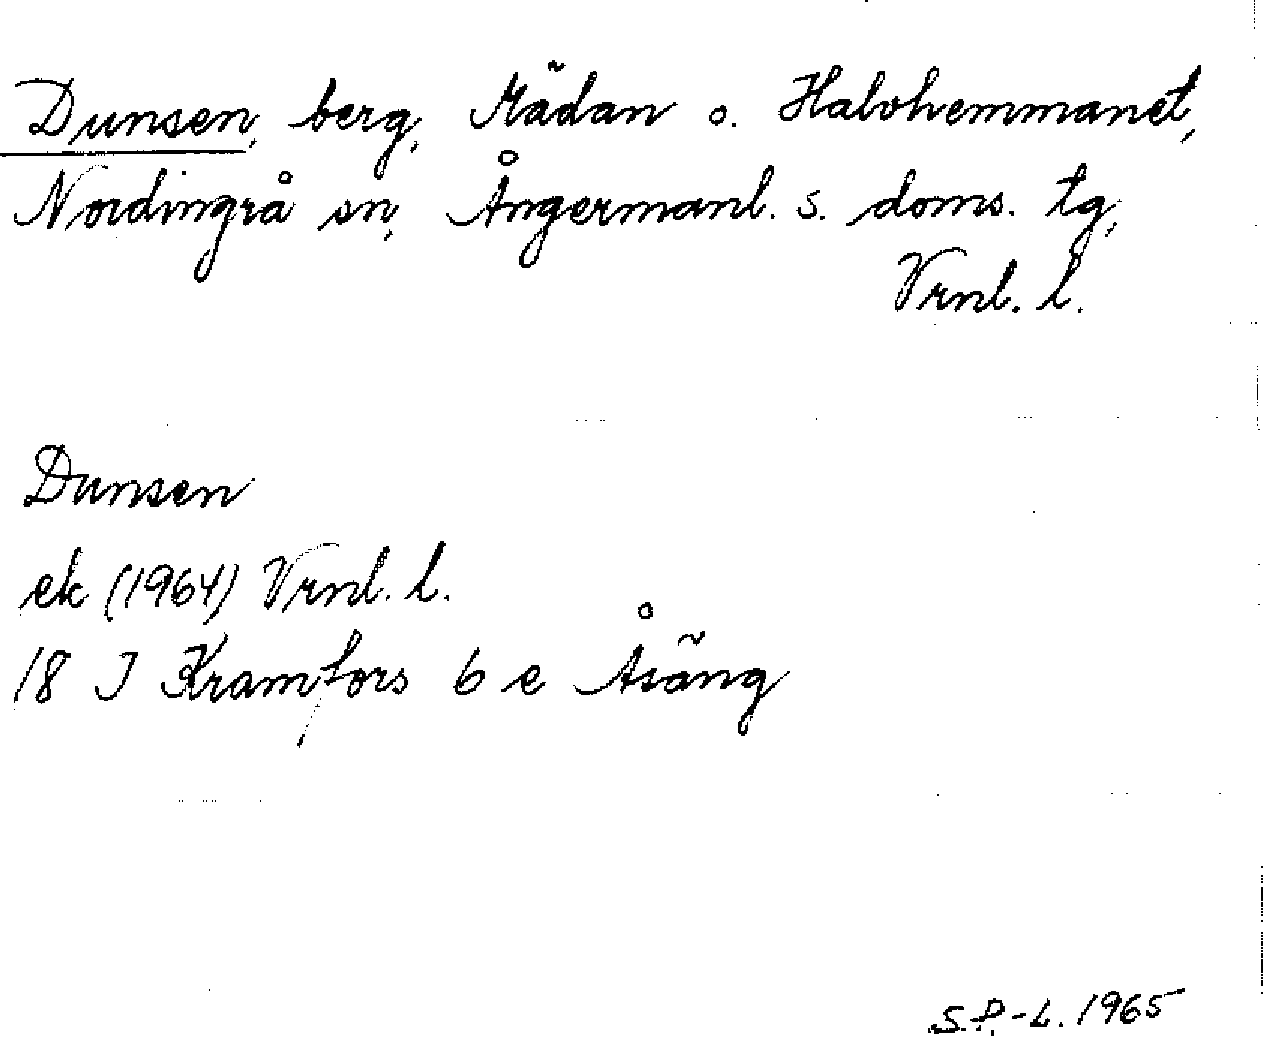 Dunsen, berg, Mädan o. Halvhemmanet,
Nordingrå sn, Ångermanl. s. doms. tg,
Vrnl. l.
Dunsen
ek (1964) Vrnl. l.
18 I Kramfors 6 e Åsäng
S.P.-L. 1965